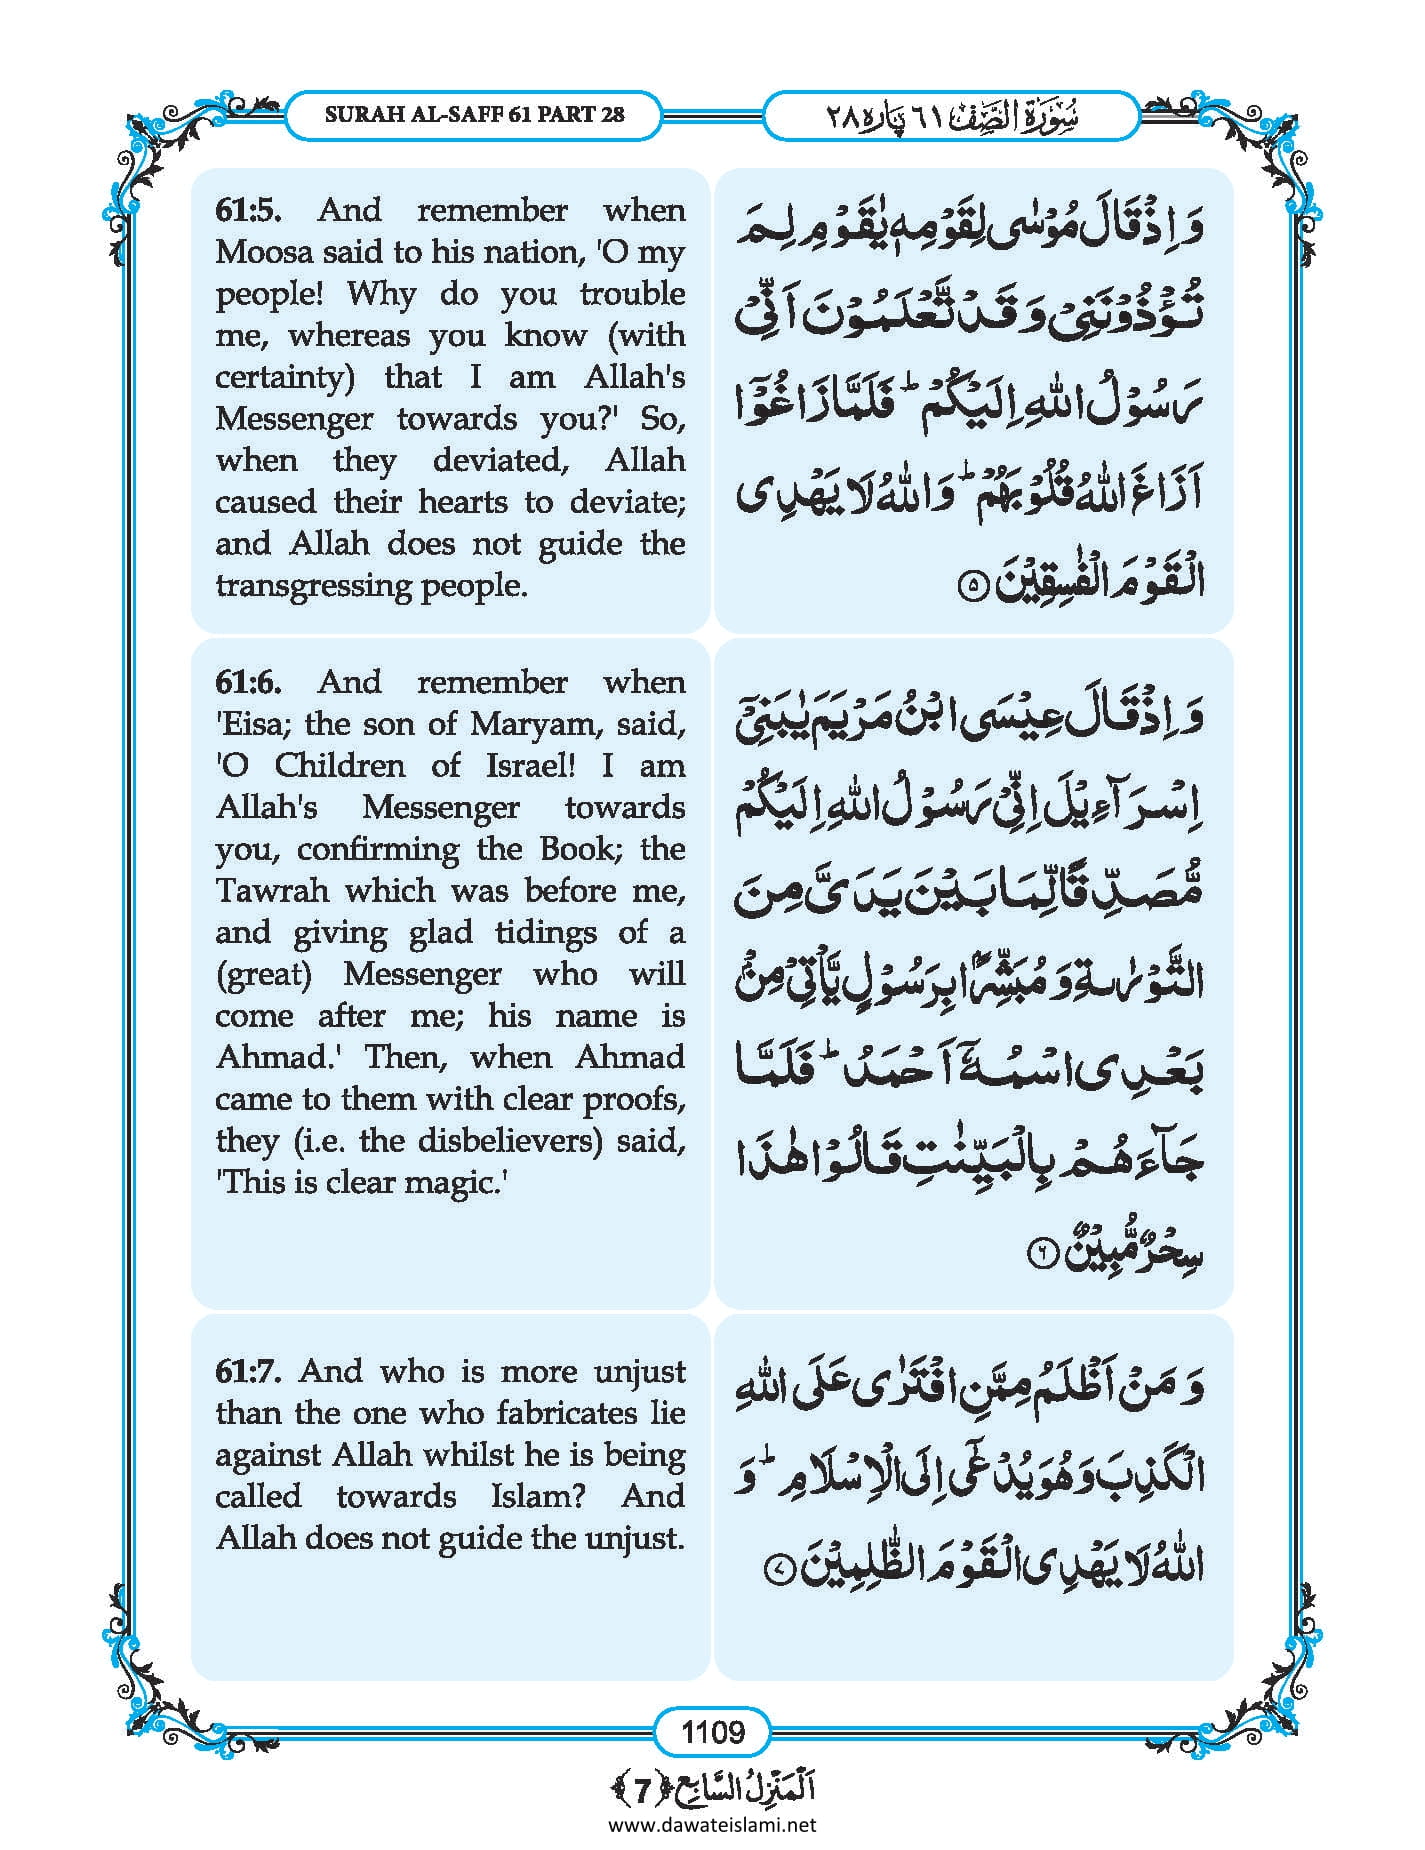 SURAH AL-SAFF 61 PART 28
سُوۡرَۃُ الصَّفِّ ٦١ پَارہ ٢٨
61:5. And remember when
Moosa said to his nation, 'O my
people! Why do you trouble
me, whereas you know (with
certainty) that I am Allah's
Messenger towards you?' So,
when they deviated, Allah
caused their hearts to deviate;
and Allah does not guide the
transgressing people.
وَ اِذْ قَالَ مُوْسٰى لِقَوْمِهٖ یٰقَوْمِ لِمَ
تُؤْذُوْنَنِیْ وَ قَدْ تَّعْلَمُوْنَ اَنِّیْ
رَسُوْلُ اللّٰهِ اِلَیْكُمْؕ فَلَمَّا زَاغُوْۤا
اَزَاغَ اللّٰهُ قُلُوْبَهُمْؕ وَ اللّٰهُ لَا یَهْدِی
الْقَوْمَ الْفٰسِقِیْنَ ۵
61:6. And remember when
'Eisa; the son of Maryam, said,
'O Children of Israel! I am
Allah's Messenger towards
you, confirming the Book; the
Tawrah which was before me,
and giving glad tidings of a
(great) Messenger who will
come after me; his name is
Ahmad.' Then, when Ahmad
came to them with clear proofs,
they (i.e. the disbelievers) said,
'This is clear magic.'
وَ اِذْ قَالَ عِیْسَى ابْنُ مَرْیَمَ یٰبَنِیْۤ
اِسْرَآءِیْلَ اِنِّیْ رَسُوْلُ اللّٰهِ اِلَیْكُمْ
مُّصَدِّقًا لِّمَا بَیْنَ یَدَیَّ مِنَ
التَّوْرٰىةِ وَ مُبَشِّرًۢا بِرَسُوْلٍ یَّاْتِیْ مِنْۢ
بَعْدِی اسْمُهٗۤ اَحْمَدُؕ فَلَمَّا
جَآءَهُمْ بِالْبَیِّنٰتِ قَالُوْا هٰذَا
سِحْرٌ مُّبِیْنٌ ۶
61:7. And who is more unjust
than the one who fabricates lie
against Allah whilst he is being
called towards Islam? And
Allah does not guide the unjust.
وَ مَنْ اَظْلَمُ مِمَّنِ افْتَرٰى عَلَى اللّٰهِ
الْكَذِبَ وَ هُوَ یُدْعٰۤى اِلَى الْاِسْلَامِؕ وَ
اللّٰهُ لَا یَهْدِی الْقَوْمَ الظّٰلِمِیْنَ ۷
1109
اَلْمَنْزِلُ السَّابِع ﴿7﴾
www.dawateislami.net